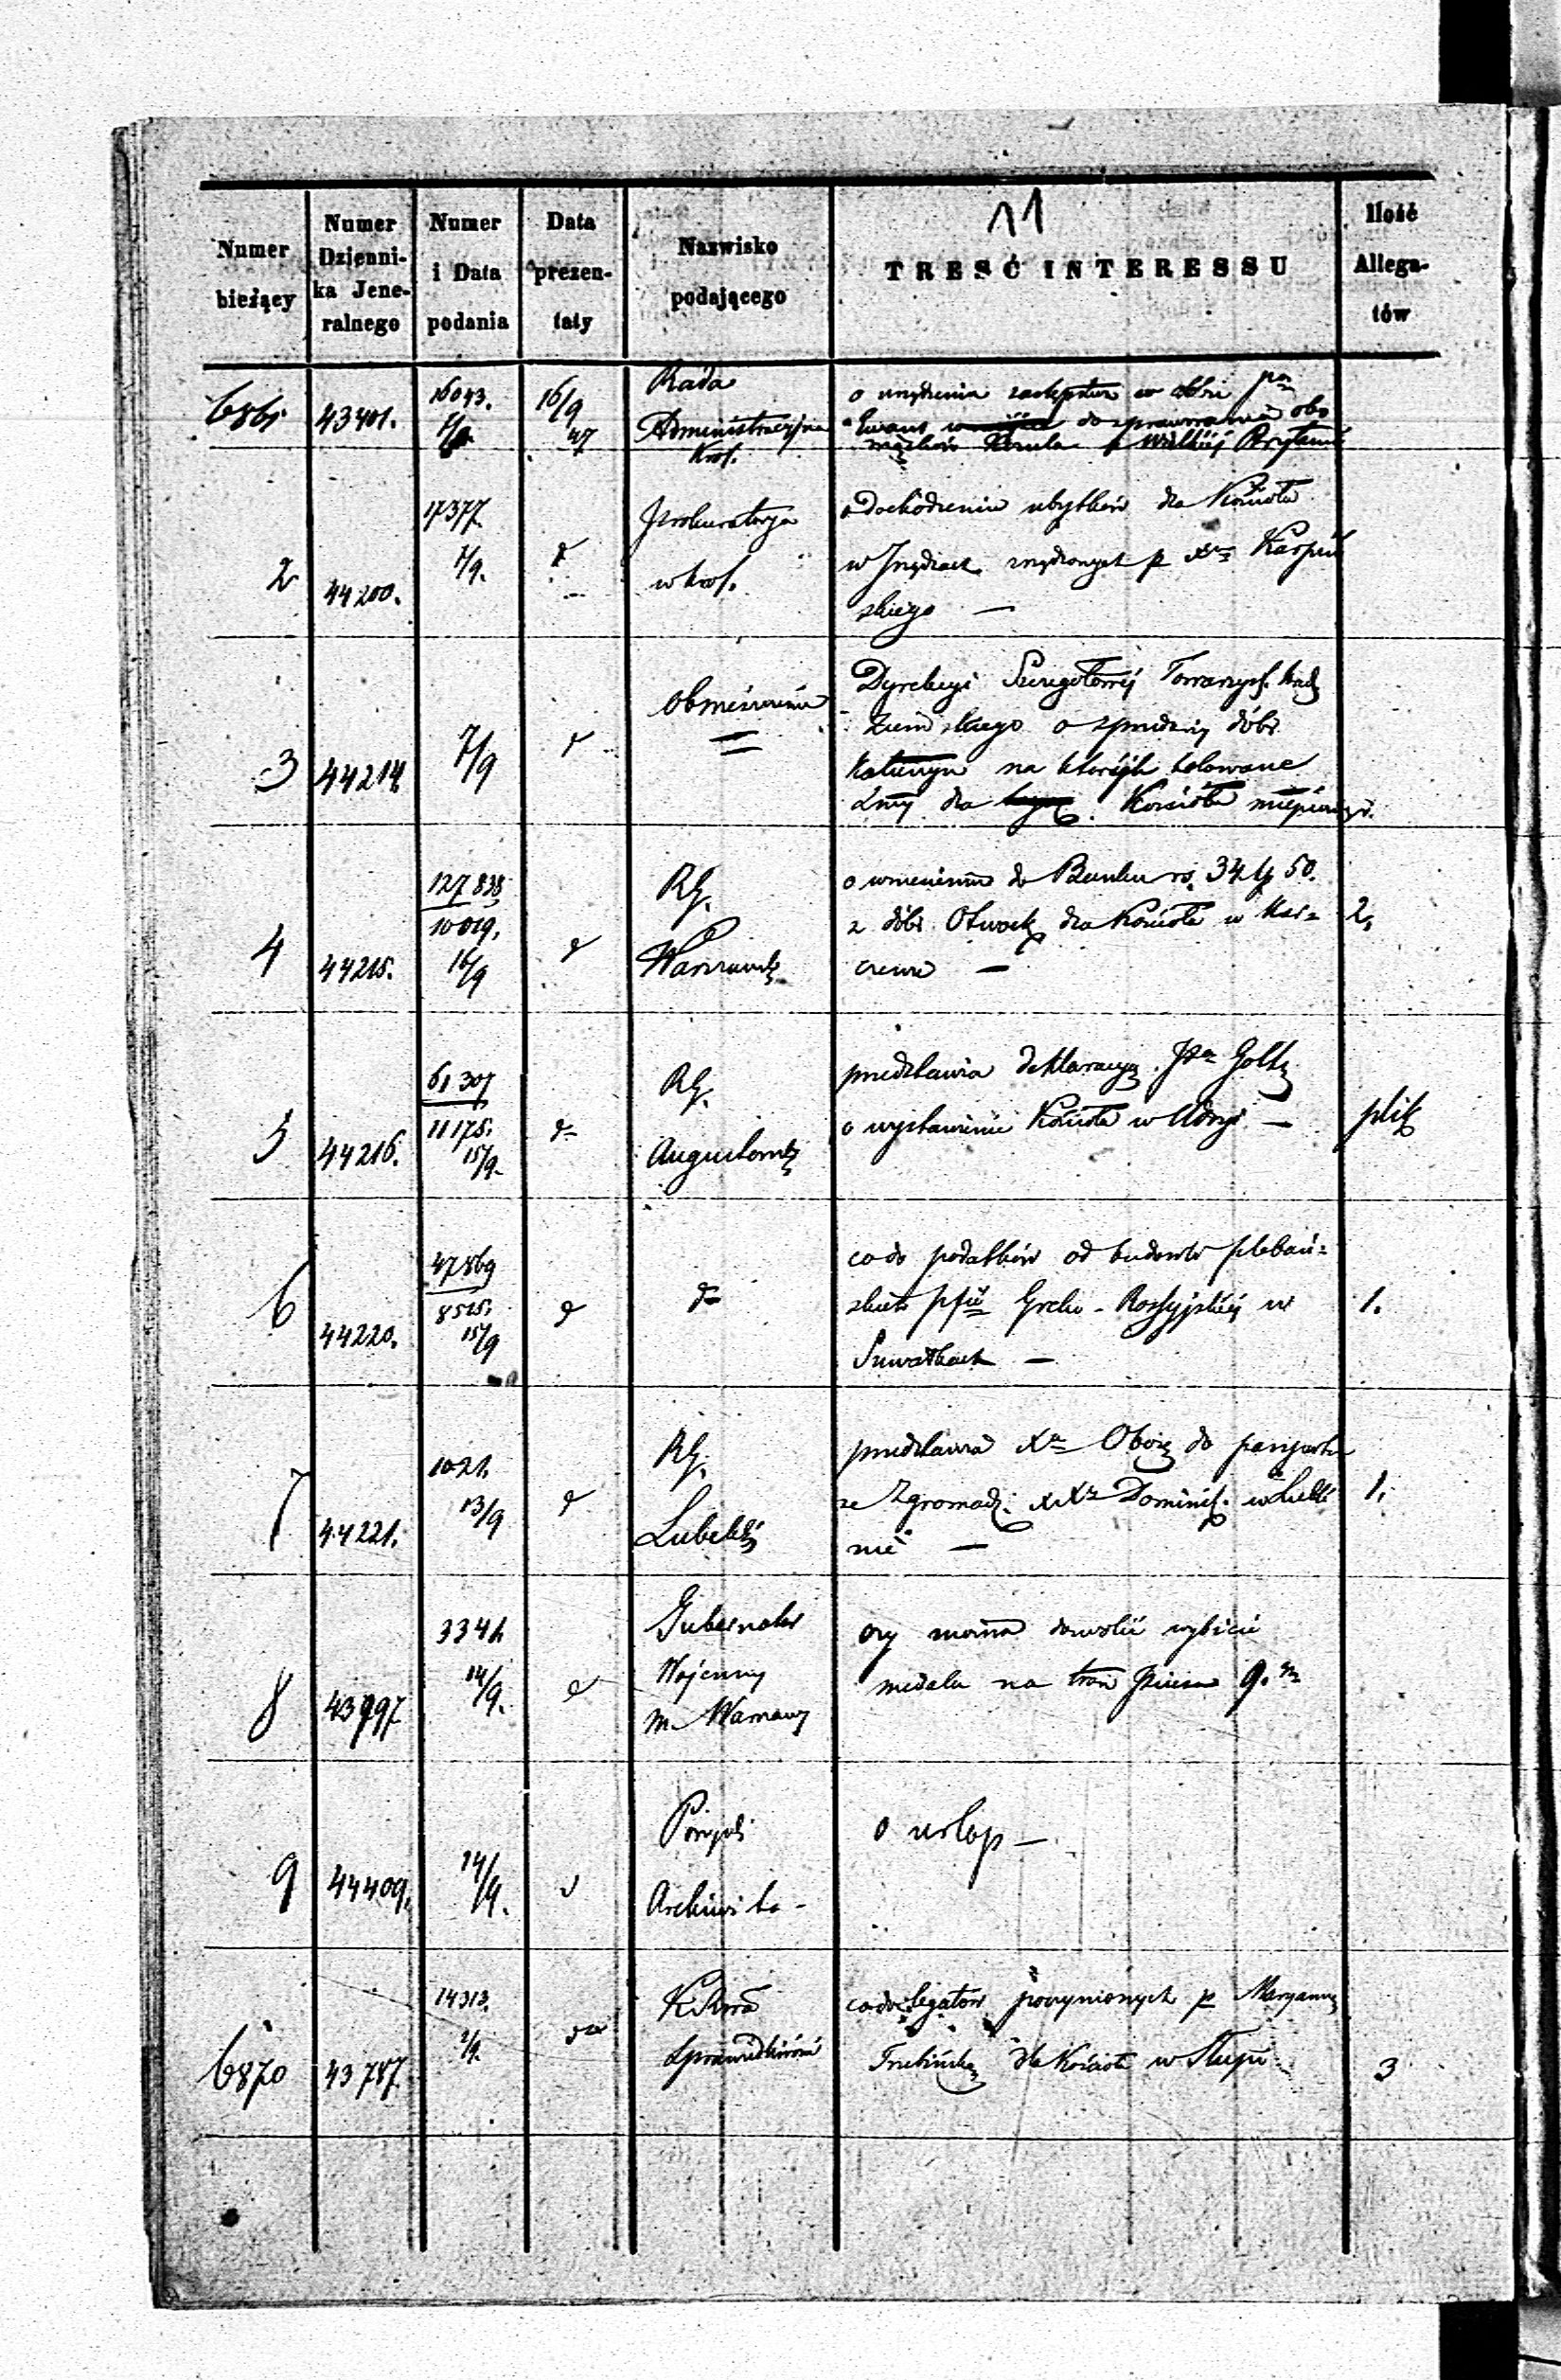 11
Numer bieżący
Numer Dzienni-ka Jene-ralnego
Numer i Data podania
Data prezen-taty
Nazwisko podającego
TREŚĆ INTERESSU
Ilość Allega-tów
6861 43401. 16043. 16/9 47 Rada Administracyjna Król.
o urządzenie zastępstwa w osobie pa
Ewans do sprawowania obo
wiązków Konsula Wielkiej Brytanii
2 44200. 17377. 7/9. Prokuratorya w Król.
o dochodzenie ubytków dla Kościoła
w zrządzonych p Xa Karpiń
skiego —
3 44214. 7/9 Obwieszczenie
Dyrekcyi Szczegółowej Towarzys. Kred
Ziemskiego o sprzedaży dóbr
na których lokowane
są dla Kościoła
4 44215. 127838 10019. 16/9 d RG. Warszawsk
o wniesieniu do Banku rs. 34 k 50.
z dóbr Otwock dla Kościoła w Kar=
czewie —
2.
5 44216. 61307 11175. 15/9. do RG. Augustowsk
przedstawia deklaracyę JPa Goltz
o wystawienie Kościoła w —
plik
6 44220. 47869 8525. 15/9 d do
co do podatków od budowli plebań=
skich pfii Greko-Rossyjskiej w
Suwałkach —
1.
7 44221. 1021. 13/9 d RG. Lubelski
przedstawia Xa do paszportu
ze Zgromadz. XXy Dominik. w Lubli
nie —
1.
8 43997 3341. 14/9. d Gubernator Wojenny m. Warszawy
czy można dozwolić wybicie
medalu na Piusa 9.m
9 44409. 14/9. d Archiwista -
o urlop —
6870 43787 14313. 2/9. do K. Rzą Sprawiedliwości
co do legatów poczynionych p Maryannę
Trubińską dla Kościoła w Słupi
3